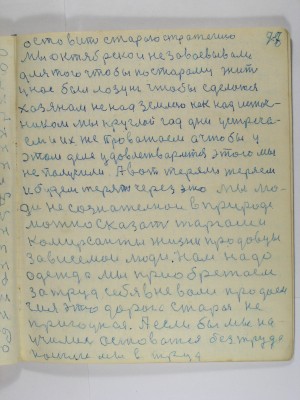 оставить старого стратению
мы октябрской незавоевывали
для того чтобы постарому жить
у нас был лозунг чтобы сделатся
хозяином не над землею как над источ
ником мы круглой год дни
ем и их же а чтобы у
этом деле удовлетварится этого мы
не получили. А вот теряли теряем
и будем терять через это мы лю-
ди не сознателной в природе
можно сказать
комерсанты жизни продавцы
зависемой люди. Нам надо
одежда мы приобретаем
за труд себя в неволи продаем
чия это дорога стара не
пригодная. А если бы мы на
учились оставатся без труда
мы в труд